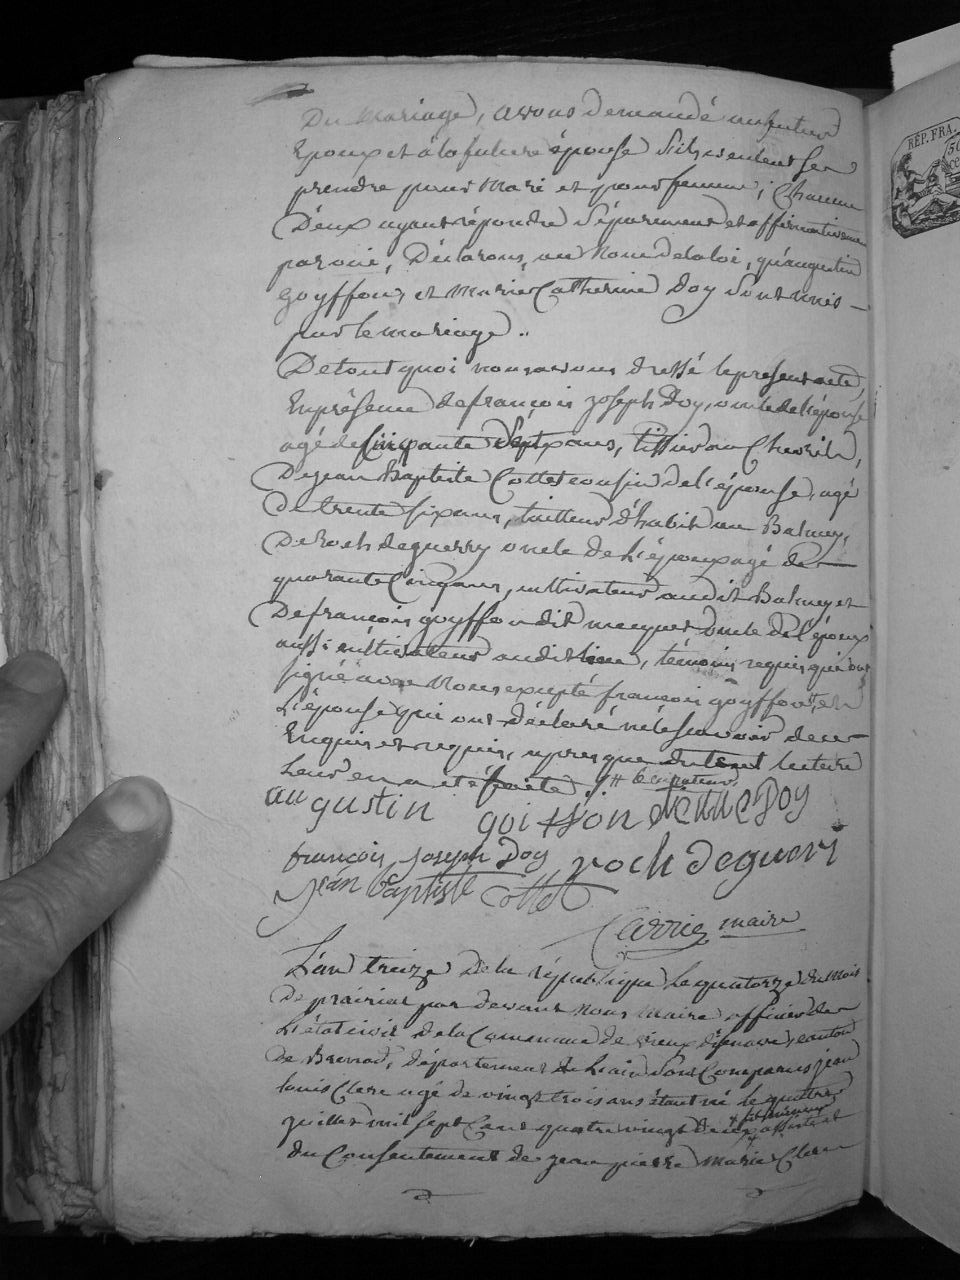 Du Mariage, avons demandé au futur
Epoux et à la future épouse s'ils veulent se
prendre pour Mari et pour femme, Chacun
D'eux ayant répondu séparement et affirmativemen
par oui, Déclarons, au Nom de la loi, qu'augustin
goyffon, et Marie Catherine Doy sont unis
par le mariage ..
De tout quoi nous avons dressé le present acte,
En présence de françois joseph Doy, oncle de l'épouse
agé de Cinquante sept ans, tissier au Chevril,
De jean Baptiste Collet cousin de l'épouse, agé
De trente six ans, tailleur d'habit au Balmey,
De Roch deguerry oncle de L'époux agé de
quarante Cinq ans, cultivateur audit Balmey et
De françois goyffon dit oncle de l'époux
aussi cultivateur audit lieu, témoins requis qui ont
signé avec Nous excepté françois goyffon, et
L'épouse qui ont déclaré ne le sçavoir de ce
Enquis et requis, apres que du tout lecture
Leur en a été faitte.
augustin goiffon Doy
françois joseph Doy roch deguerri
jean Baptiste Collet
Carrier maire
L'an treize De la république le quatorze du mois
De prairial par devant nous maire officier de
L'état civil de la Commune de vieux d'jzenave, canton
de Brenod, département de L'ain sont Comparus jean
louis Clerc agé de vingt trois ans étant né le quatre
juillet mil sept Cent quatre vingt deux assisté et
du Consentement de jean pierre Marie Clerc
RÉP. FRA.
50